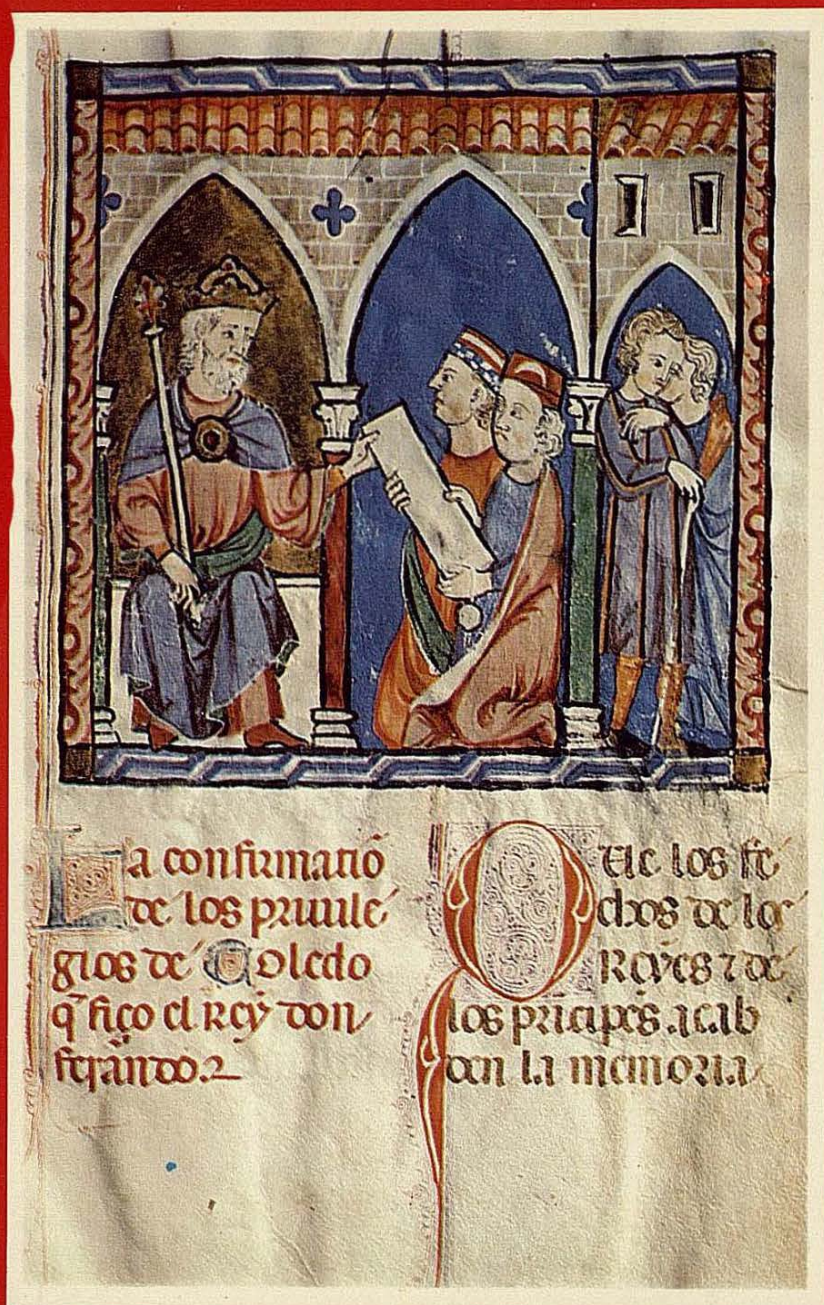 La confirmatiõ
de los priuile
gios de Toledo
q̃ fiço el rey don
ferãndo.
Que los fe
chos de los
Reyes ⁊ de
los prĩcipes. acab
den la memoria